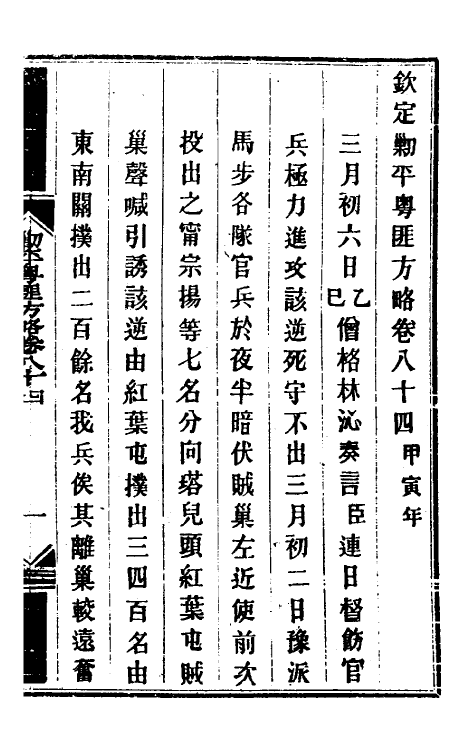 欽定剿平粵匪方略卷八十四甲寅年
三月初六日乙巳僧格林沁奏言臣連日督飭官
兵極力進攻該逆死守不出三月初二日豫派
馬步各隊官兵於夜半暗伏賊巢左近使前次
投出之甯宗揚等七名分向塔兒頭紅葉屯賊
巢聲喊引誘該逆由紅葉屯撲出三四百名由
東南關撲出二百餘名我兵俟其離巢較遠奮
剿平粵匪方略卷八十四
一